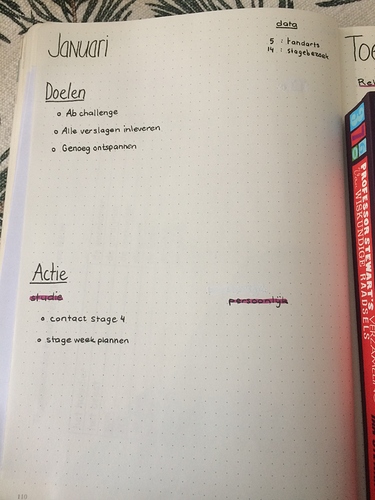 Januari
data
5 : tandarts
14 : stagebezoek
Doelen
Ab challenge
Alle verslagen inleveren
Genoeg ontspannen
Actie
studie
persoonlijk
contact stage 4
stage week plannen
Toe
PROFESSOR STEWART'S
VERZAMELING
WISKUNDIGE RAADSELS
110